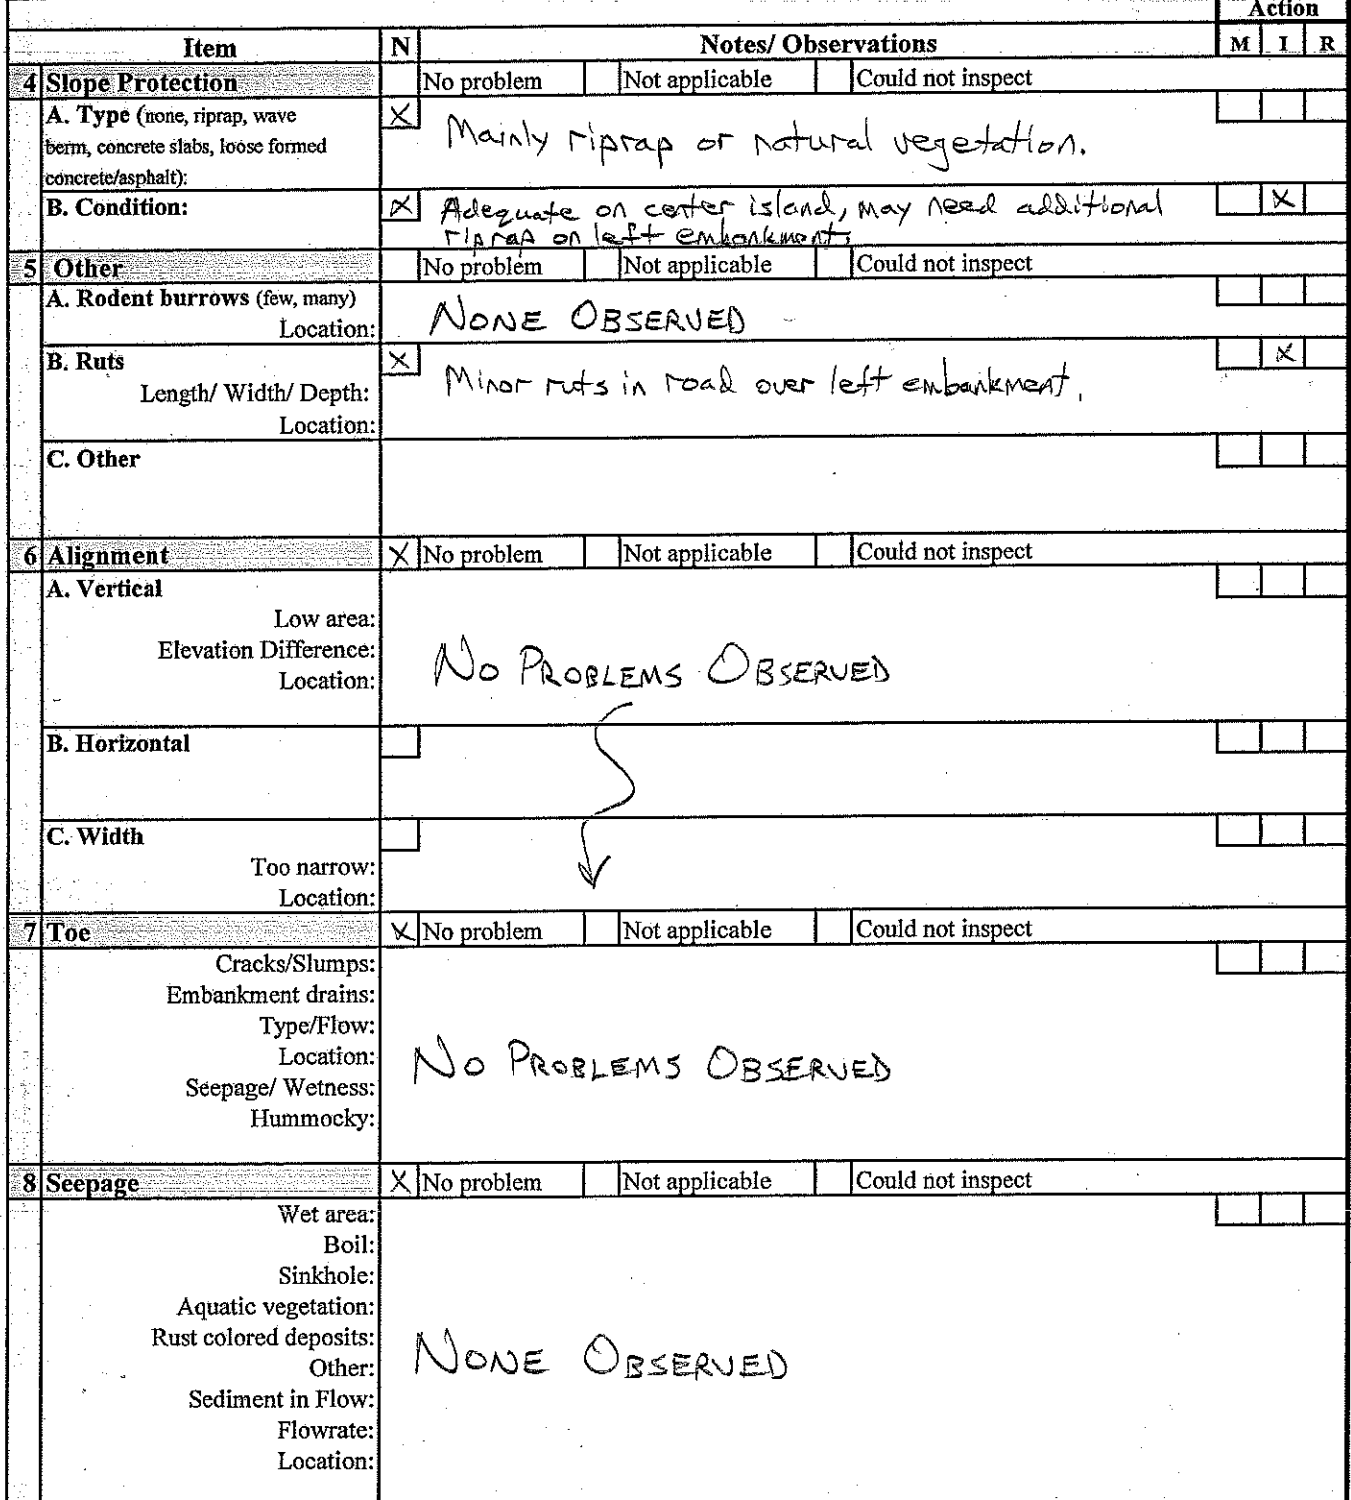 Action
Item N Notes/ Observations M I R
4 Slope Protection No problem Not applicable Could not inspect
A. Type (none, riprap, wave X
berm, concrete slabs, loose formed Mainly riprap or natural vegetation.
concrete/asphalt):
B. Condition: X Adequate on center island, may need additional X
riprap on left embankment.
5 Other No problem Not applicable Could not inspect
A. Rodent burrows (few, many)
Location: NONE OBSERVED
B. Ruts X X
Length/ Width/ Depth: Minor ruts in road over left embankment.
Location:
C. Other
6 Alignment X No problem Not applicable Could not inspect
A. Vertical
Low area:
Elevation Difference:
Location: NO PROBLEMS OBSERVED
B. Horizontal
C. Width
Too narrow:
Location:
7 Toe X No problem Not applicable Could not inspect
Cracks/Slumps:
Embankment drains:
Type/Flow:
Location: NO PROBLEMS OBSERVED
Seepage/ Wetness:
Hummocky:
8 Seepage X No problem Not applicable Could not inspect
Wet area:
Boil:
Sinkhole:
Aquatic vegetation:
Rust colored deposits:
Other: NONE OBSERVED
Sediment in Flow:
Flowrate:
Location: